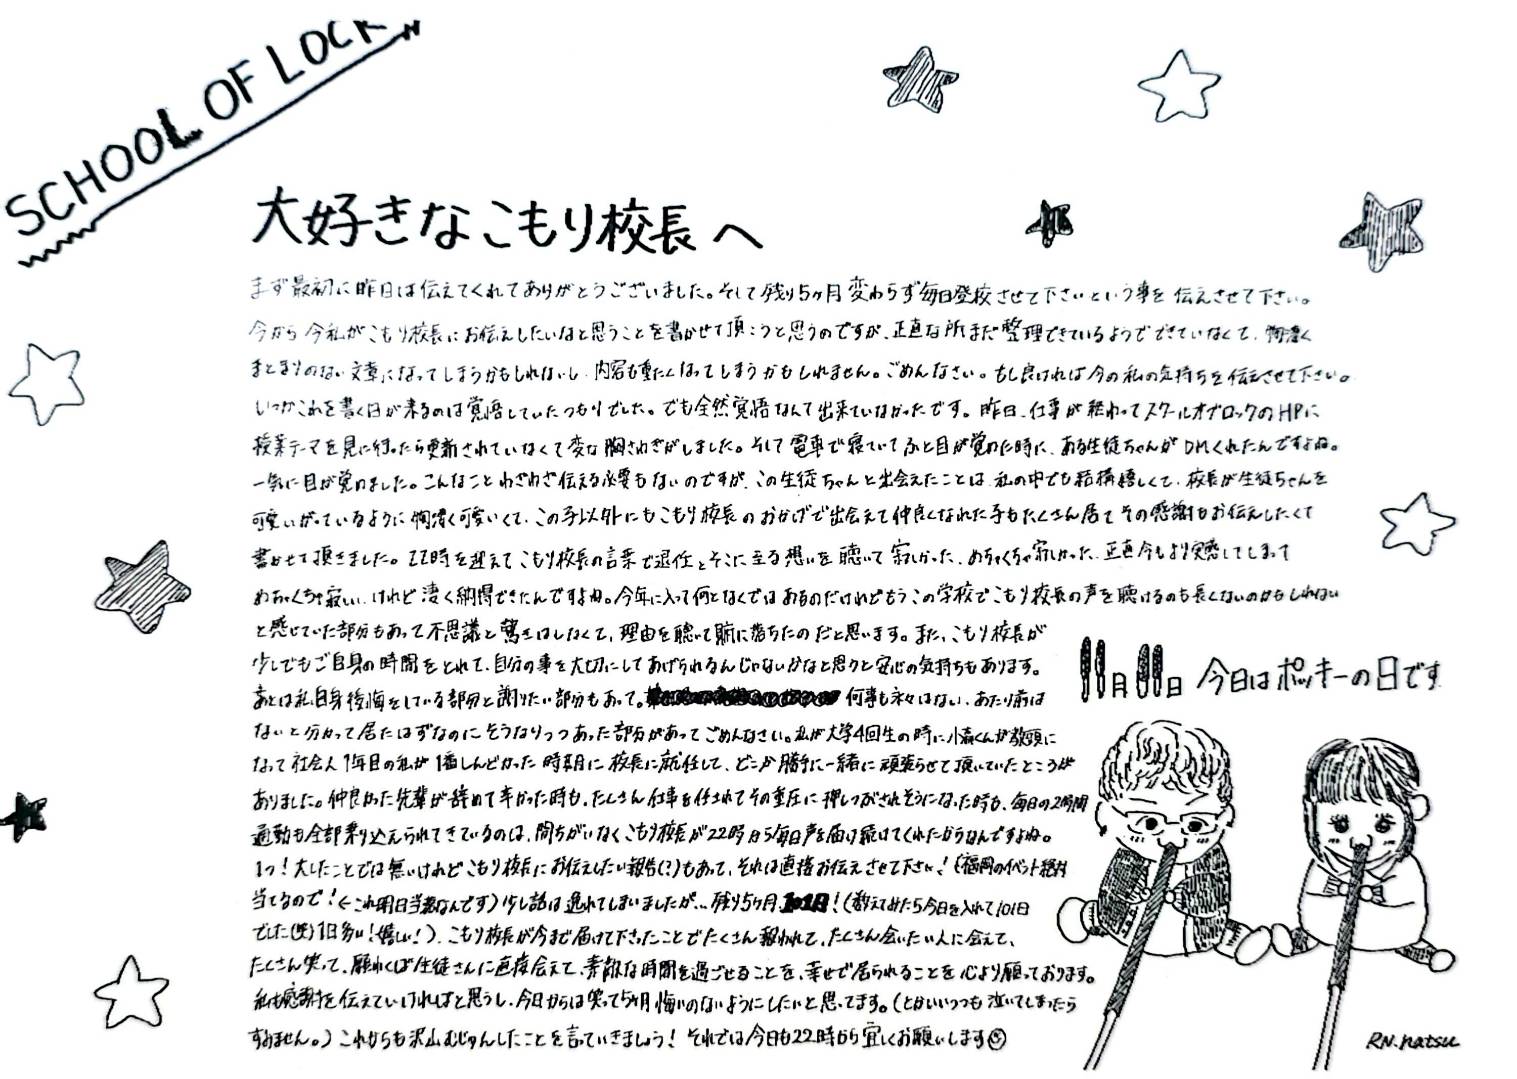 SCHOOL OF LOCK
大好きなこもり校長へ
まず最初に昨日は伝えてくれてありがとうございました。そして残り5ヶ月変わらず毎日登校させて下さいという事を伝えさせて下さい。
今から今私がこもり校長にお伝えしたいなと思うことを書かせて頂こうと思うのですが、正直な所まだ整理できているようでできていなくて、物凄く
まとまりのない文章になってしまうかもしれないし、内容も重たくなってしまうかもしれません。ごめんなさい。もし良ければ今の私の気持ちを伝えさせて下さい。
いつかこれを書く日が来るのは覚悟していたつもりでした。でも全然覚悟なんて出来ていなかったです。昨日、仕事が終わってスクールオブロックのHPに
授業テーマを見に行ったら更新されていなくて変な胸さわぎがしました。そして電車で寝ていてふと目が覚めた時に、ある生徒ちゃんがDMくれたんですよね。
一気に目が覚めました。こんなことわざわざ伝える必要もないのですが、この生徒ちゃんと出会えたことは、私の中でも結構嬉しくて、校長が生徒ちゃんを
可愛いがっているように物凄く可愛いくて、この子以外にもこもり校長のおかげで出会えて仲良くなれた子もたくさん居てその感謝もお伝えしたくて
書かせて頂きました。22時を迎えてこもり校長の言葉で退任とそこに至る想いを聴いて寂しかった、めちゃくちゃ寂しかった、正直今もより実感してしまって
めちゃくちゃ寂しい、けれど凄く納得できたんですよね。今年に入って何となくではあるのだけれどもうこの学校でこもり校長の声を聴けるのも長くないのかもしれない
と感じていた部分もあって不思議と驚きはしなくて、理由を聴いて腑に落ちたのだと思います。また、こもり校長が
少しでもご自身の時間をとれて、自分の事を大切にしてあげられるんじゃないかなと思うと安心の気持ちもあります。
あとは私自身後悔をしている部分と謝りたい部分もあって。何事も永々はない、あたり前は
ないと分かって居たはずなのにそうなりつつあった部分があってごめんなさい。私が大学4回生の時に小森くんが教頭に
なって社会人1年目の私が1番しんどかった時期に校長に就任して、どこか勝手に一緒に頑張らせて頂いていたところが
ありました。仲良かった先輩が辞めて辛かった時も、たくさん仕事を任されてその重圧に押しつぶされそうになった時も、毎日の2時間
通勤も全部乗り込えられてきているのは、間ちがいなくこもり校長が22時から毎日声を届け続けてくれたからなんですよね。
1つ！大したことでは無いけれどこもり校長にお伝えしたい報告(?)もあって、それは直接お伝えさせて下さい！(福岡のイベント絶対
当てるので！←これ明日当落なんです)少し話は逸れてしまいましたが…残り5ヶ月、101日！(数えてみたら今日を入れて101日
でした(笑)1日多い！嬉しい！)、こもり校長が今まで届けて下さったことでたくさん報われて、たくさん会いたい人に会えて、
たくさん笑って、願わくば生徒さんに直接会えて、素敵な時間を過ごせることを、幸せで居られることを心より願っております。
私も感謝を伝えていければと思うし、今日からは笑って5ヶ月悔いのないようにしたいと思ってます。(とかいいつつも泣いてしまったら
すみません。)これからも沢山むじゅんしたことを言っていきましょう！それでは今日も22時から宜しくお願いします
11月11日 今日はポッキーの日です
RN.natsu